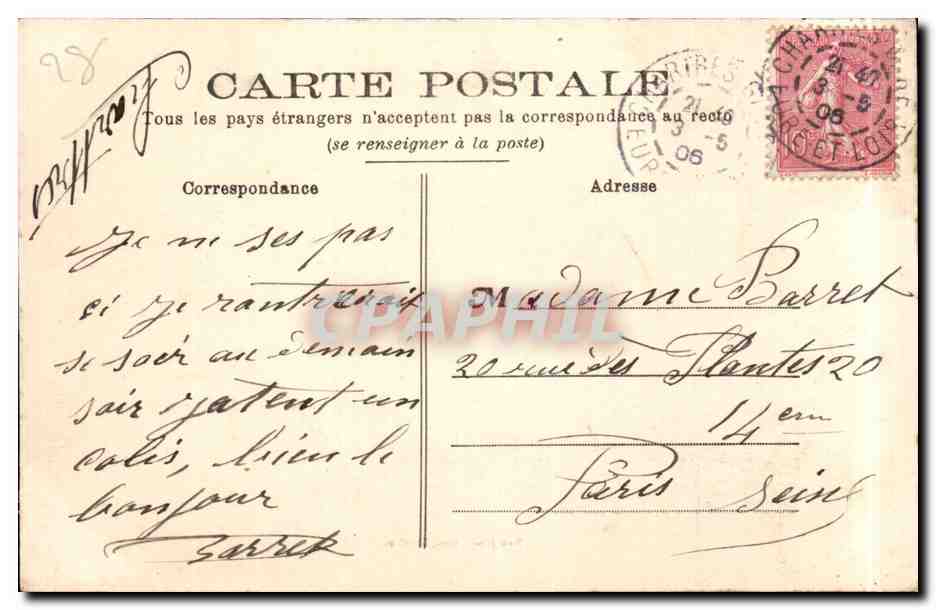 28
CARTE POSTALE
Tous les pays étrangers n'acceptent pas la correspondance au recto
(se renseigner à la poste)
Correspondance
Adresse
Je ne ses pas
çi je rantrerait
se soir au demain
soir jatent un
colis, bien le
bonjour
Barret
Madame Barret
20 rue des Plantes 20
14 em
Paris Seine
CHARTRES
21 40
3 - 5
06
EUR
CHARTRES GARE
21 40
3 - 5
06
EURE ET LOIR
10
CPAPHIL